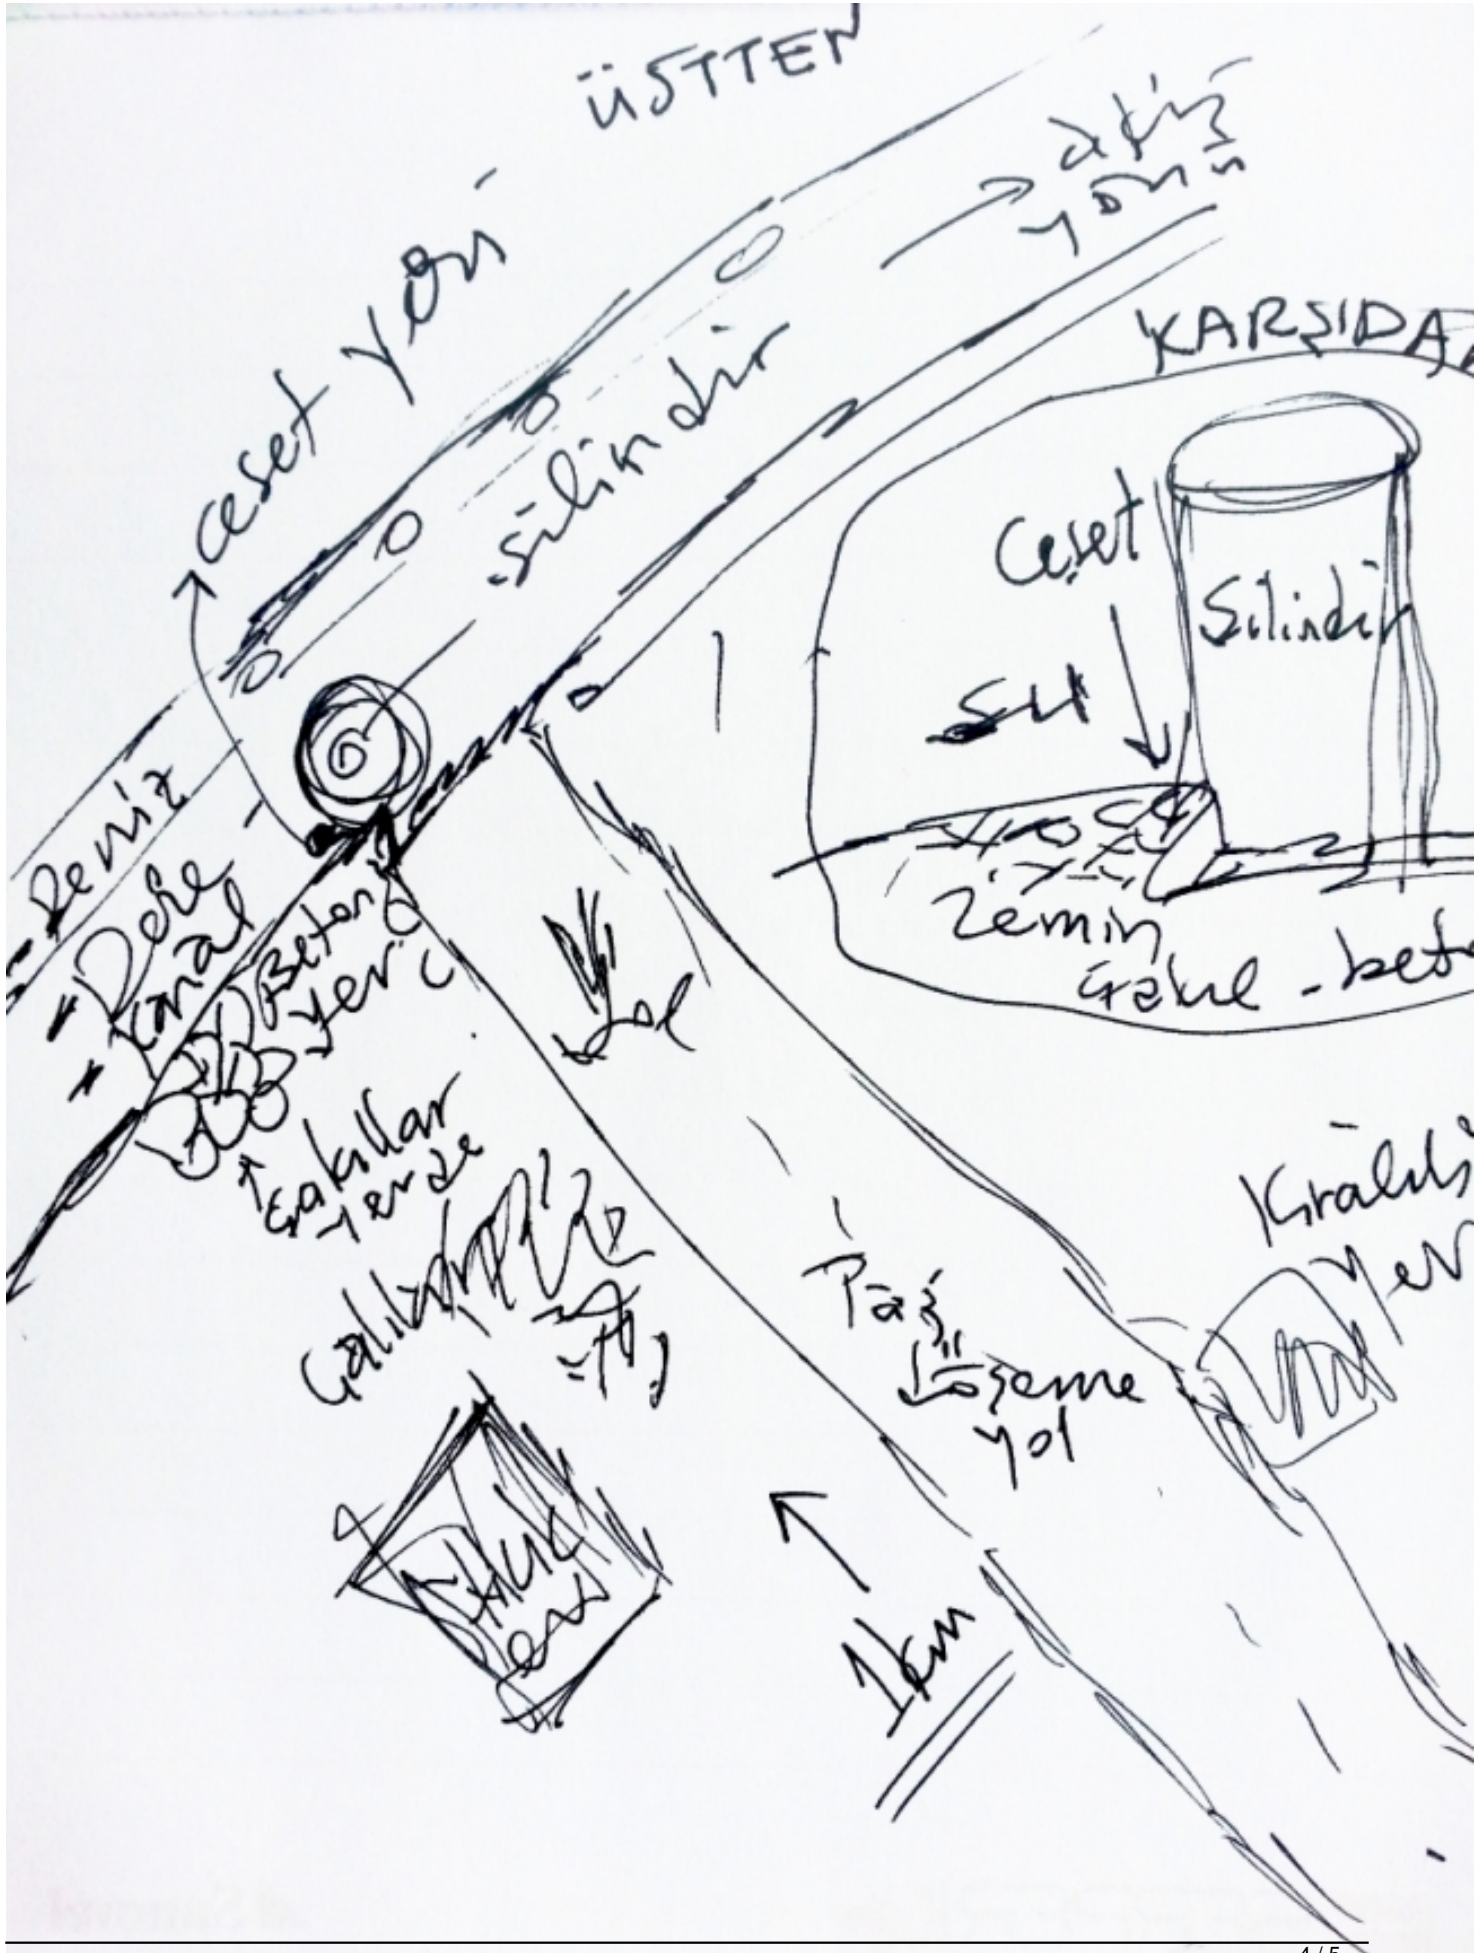 ÜSTTEN
akış
yönü
ceset yeri
silindir
KARŞIDA
Ceset
Silindir
Su
Zemin
Çakıl - bet
Deniz
Dere
kanal
Beton
yer
Yol
Çakıllar
yerde
Çalılık
Taş
Döşeme
yol
Kiralık
yer
1km
4 / 5